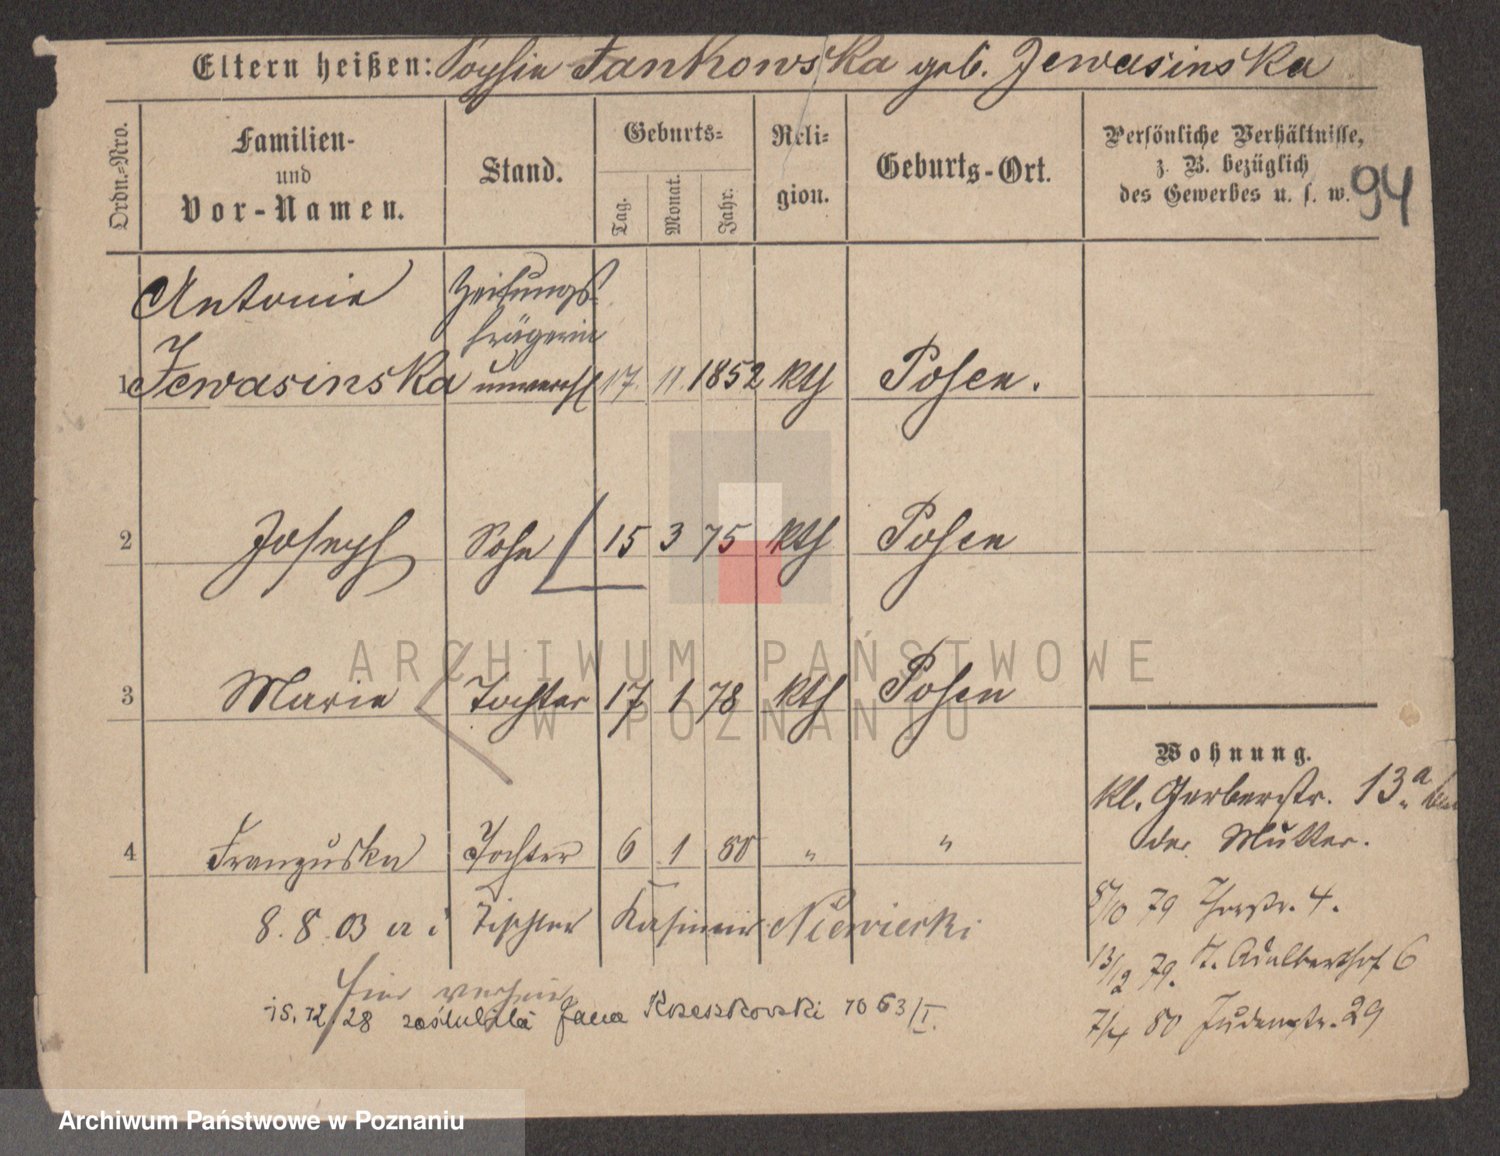 Eltern heißen: Sophie Jankowska geb. Jewasinska
Ordn.=Nro.
Familien-
und
Vor-Namen.
Stand.
Geburts=
Tag.
Monat.
Jahr.
Reli=
gion.
Geburts-Ort.
Persönliche Verhältnisse,
z. B. bezüglich
des Gewerbes u. s. w.
94
Antonie Zeitungs-
trägerin
1 Jewasinska unverehl 17. 11. 1852 kth Posen.
2 Joseph Sohn 15 3 75 kth Posen
3 Marie Tochter 17 1 78 kth Posen
4 Franziska Tochter 6 1 80 " "
8. 8. 03 Tischler Kasimir Niewierski
15. 12. 28 zaślubiła Jana Kozaskowski 1063/I.
Wohnung.
kl. Gerberstr. 13a bei
der Mutter.
8/10 79 Thorstr. 4.
13/12 79. St. Adalberthof 6
7/4 80 Judenstr. 29
ARCHIWUM PAŃSTWOWE
W POZNANIU
Archiwum Państwowe w Poznaniu